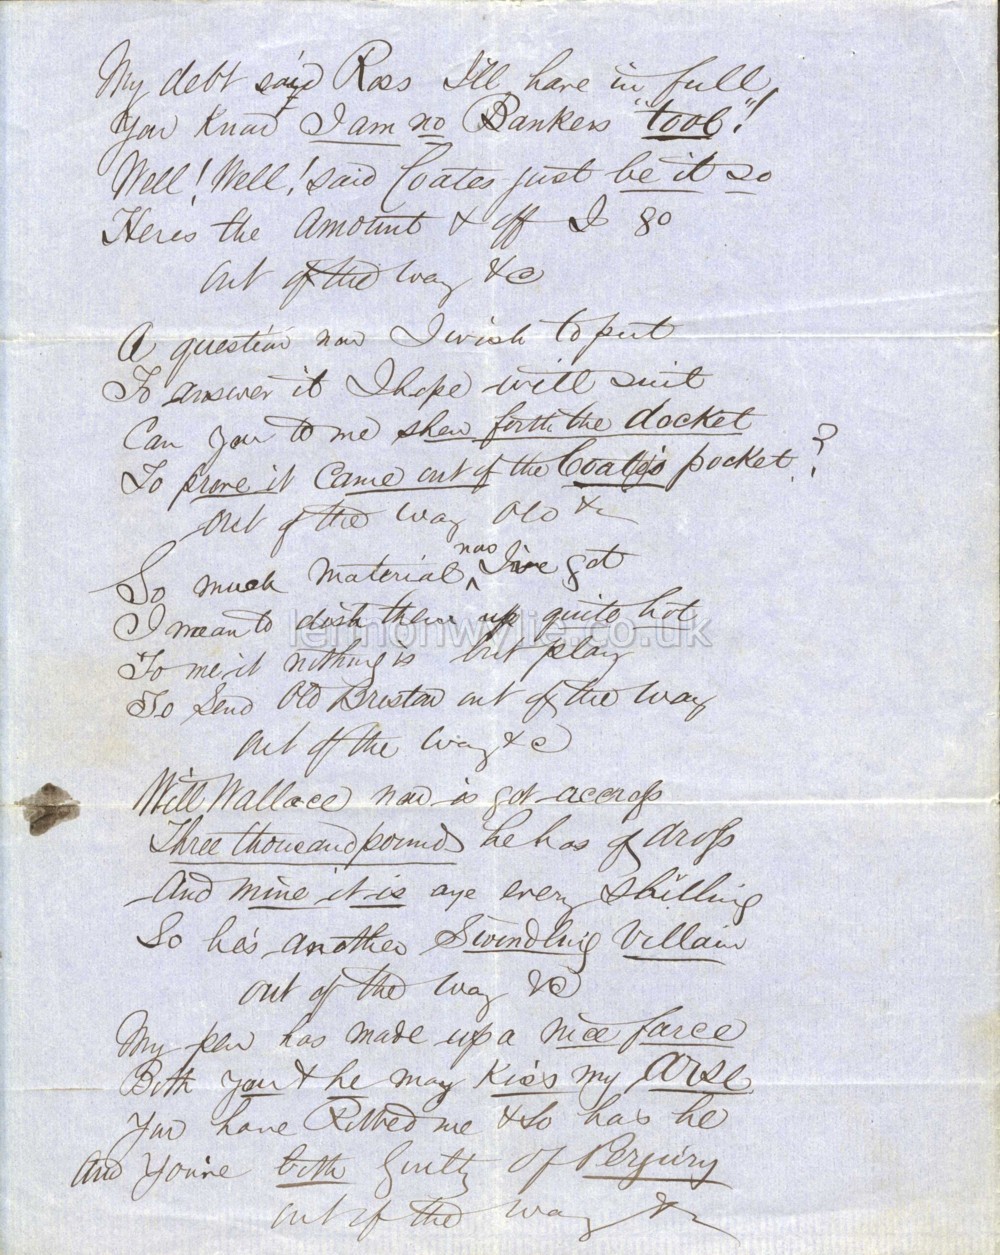 My debt said Ross I'll have in full
You Know I am no Bankers "tool"!
Well! Well! said Coates just be it so
Heres the amount & off I go
out of the way &c
A question now I wish to put
To answer it I hope will suit
Can you to me shew forth the docket
To prove it Came out of the Coates pocket?
out of the way Old &c
So much material now I've got
I mean to dish them up quite hot
To me it nothing is but play
To Send Old Breston out of the way
out of the way &c
Will Wallace now is got accross
Three thousand pounds he has of dross
And mine it is aye every shilling
So he's another Swindling Villain
out of the way &c
My pen has made up a nice farce
Both you & he may Kiss my Arse
You have Robbed me & So has he
And You're both Guilty of Perjury
out of the way &c
lennonwylie.co.uk